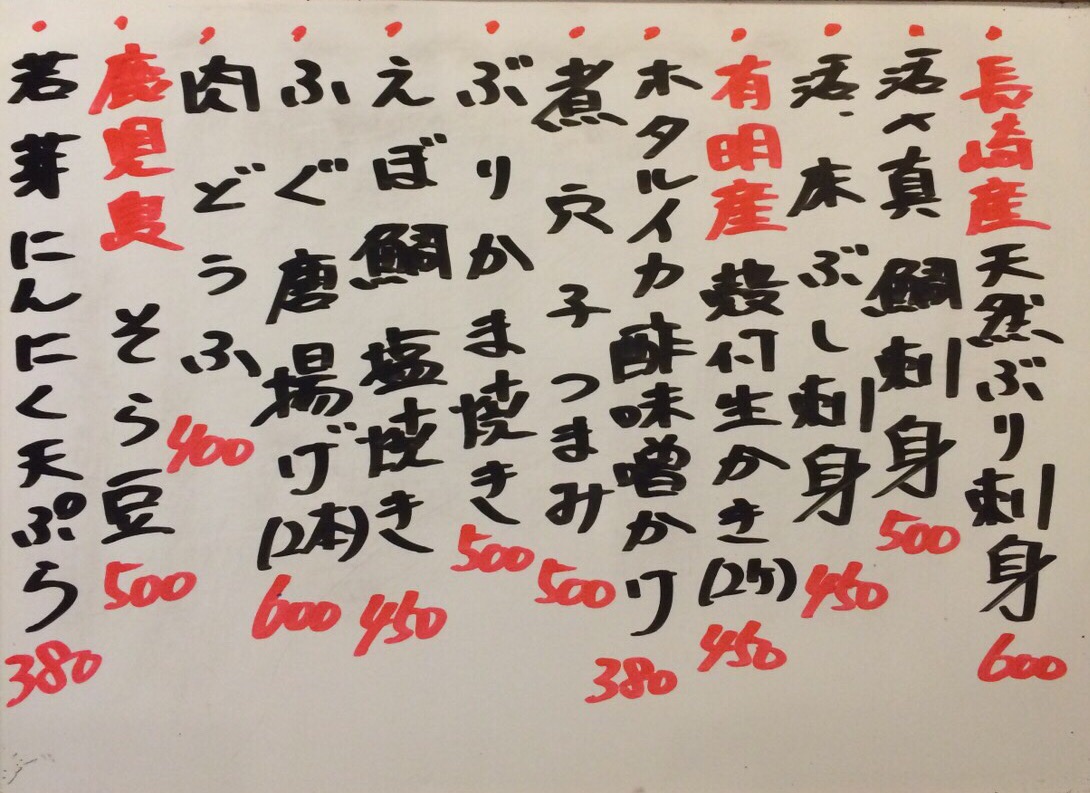 ・長崎産天然ぶり刺身 600
・活〆真鯛刺身 500
・活、床ぶし刺身 450
・有明産殻付生かき(2ケ) 450
・ホタルイカ酢味噌かけ 380
・煮穴子つまみ 500
・ぶりかま焼き 500
・えぼ鯛塩焼き 450
・ふぐ唐揚げ(2本) 600
・肉どうふ 400
・鹿児島そら豆 500
・若芽にんにく天ぷら 380